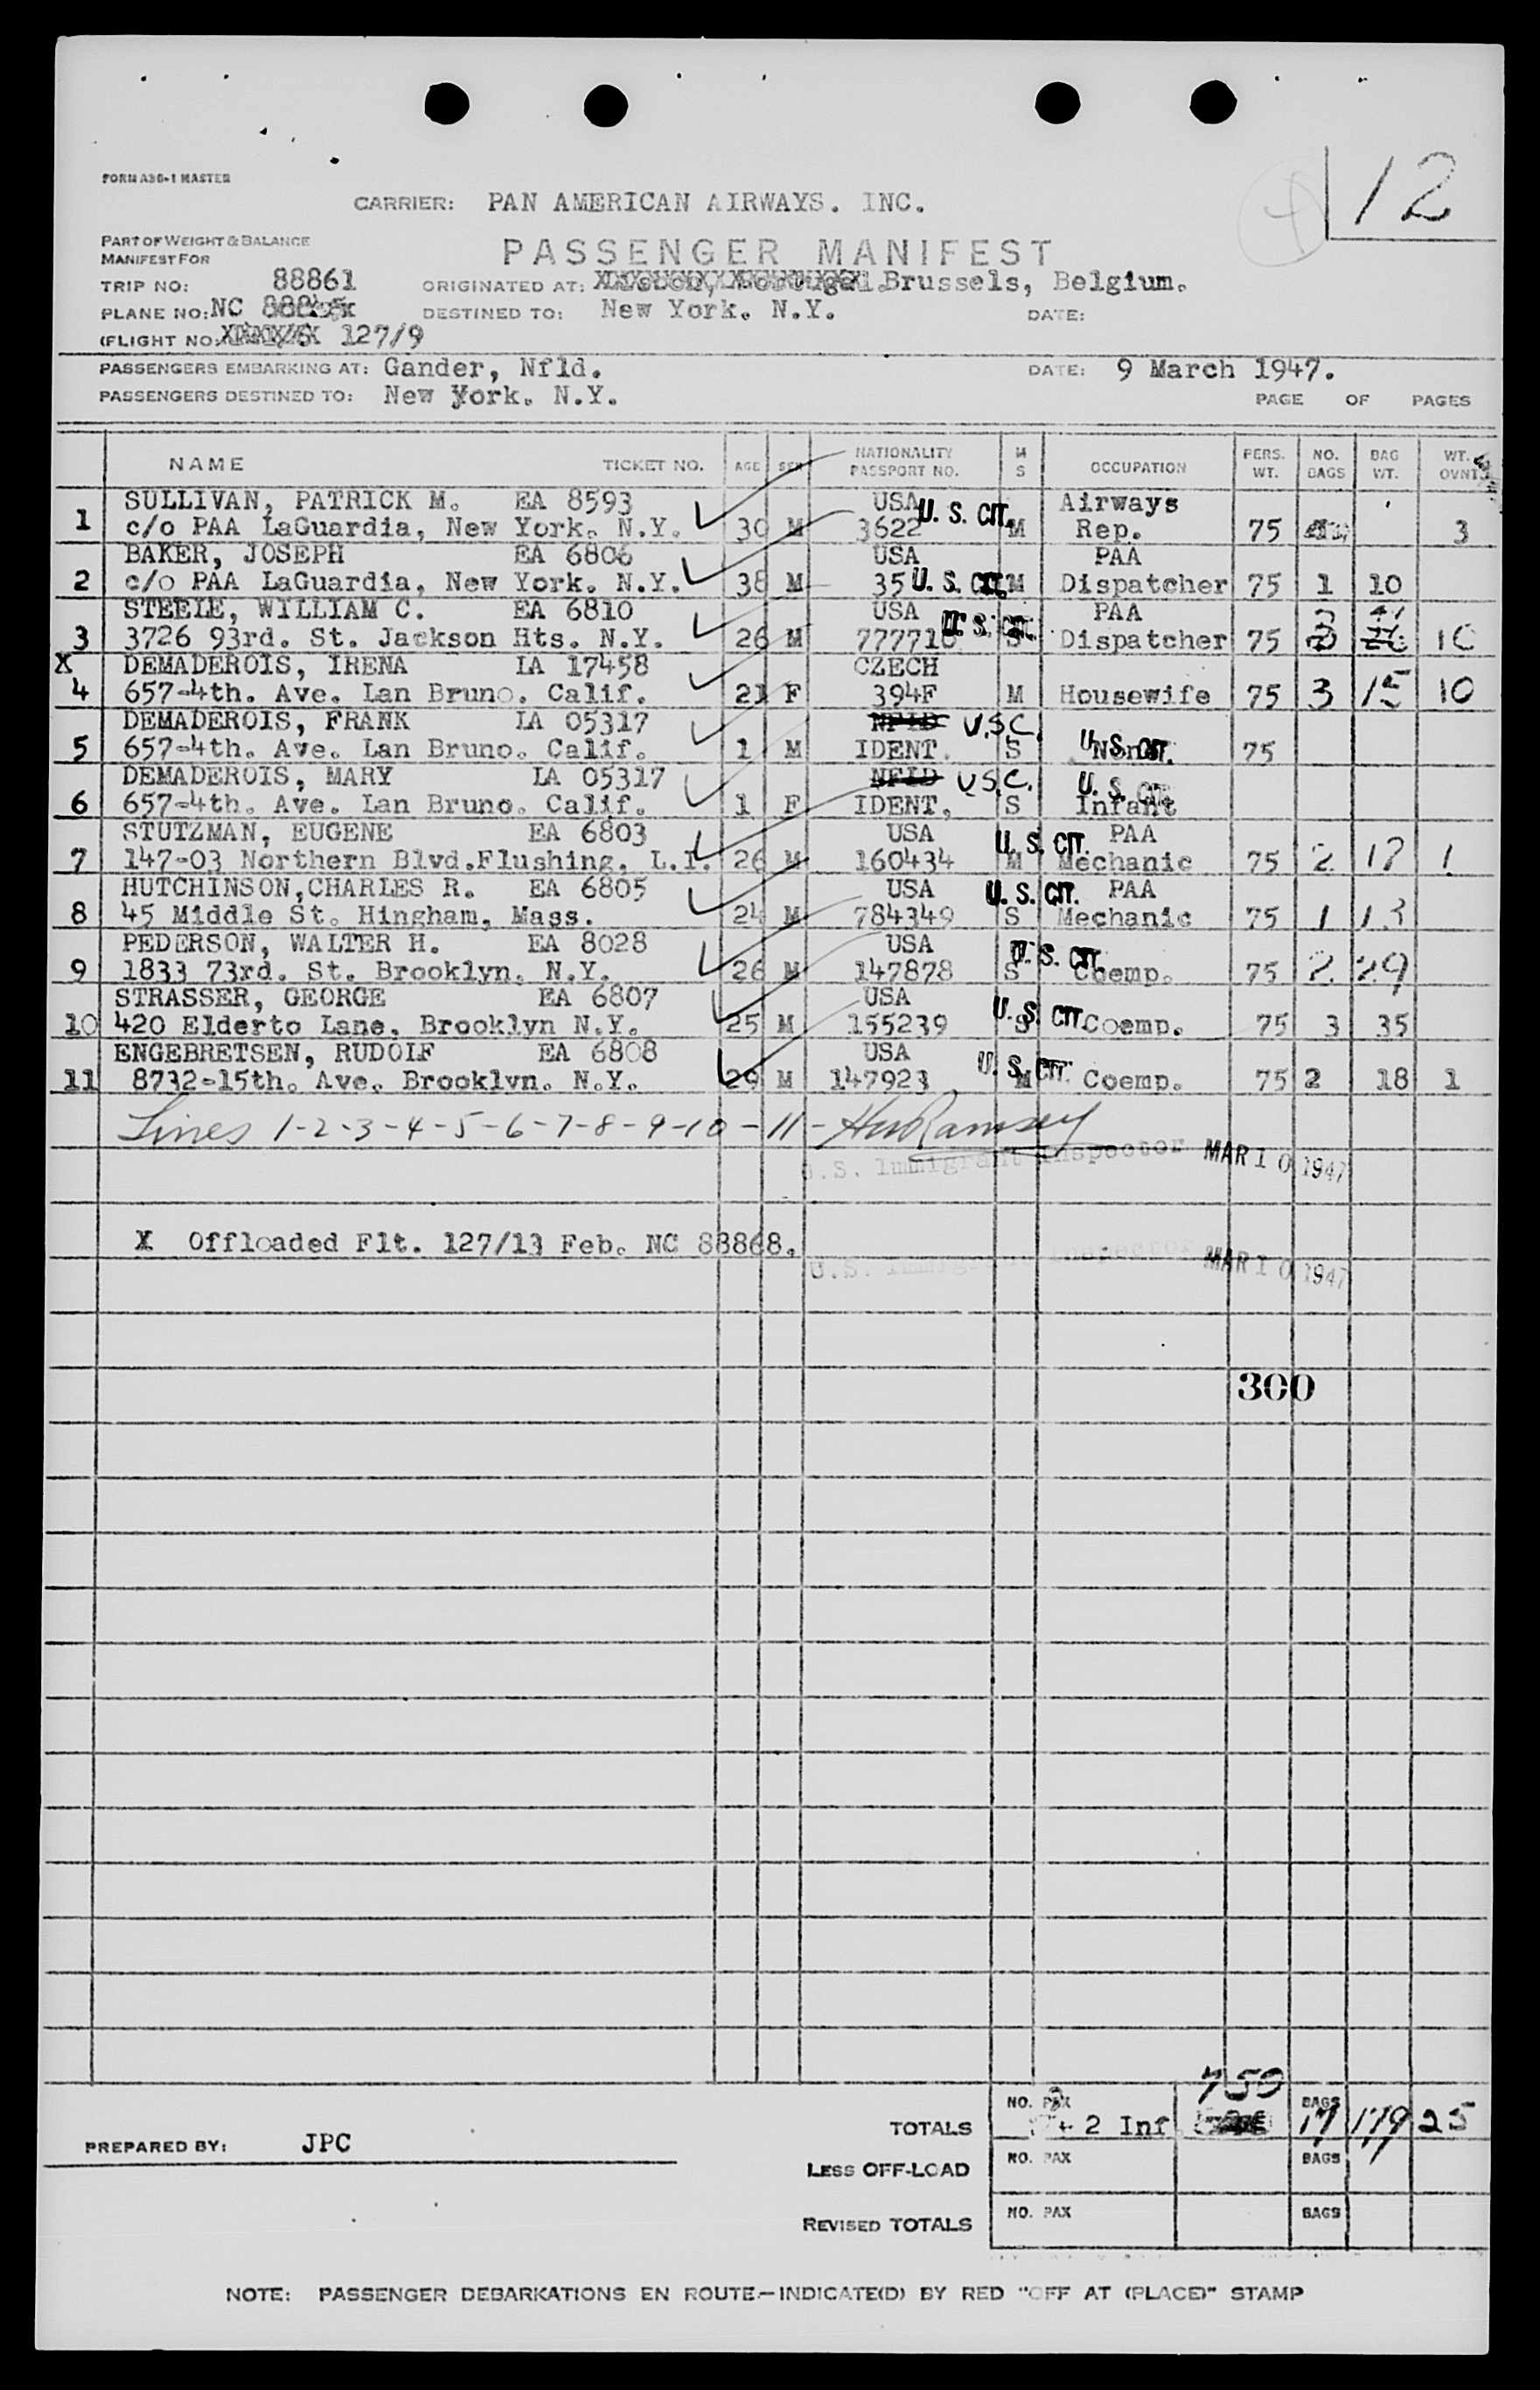 12
FORM A36-1 MASTER
CARRIER: PAN AMERICAN AIRWAYS. INC.
PART OF WEIGHT & BALANCE
MANIFEST FOR
PASSENGER MANIFEST
TRIP NO: 88861 ORIGINATED AT: Brussels, Belgium.
PLANE NO: NC DESTINED TO: New York. N.Y. DATE:
(FLIGHT NO: 127/9
PASSENGERS EMBARKING AT: Gander, Nfld. DATE: 9 March 1947.
PASSENGERS DESTINED TO: New York. N.Y. PAGE OF PAGES
NAME TICKET NO. AGE SEX NATIONALITY PASSPORT NO. M S OCCUPATION PERS. WT. NO. BAGS BAG WT. WT. OVNT.
SULLIVAN, PATRICK M. EA 8593 USA U. S. CIT. Airways
1 c/o PAA LaGuardia, New York. N.Y. 30 M 3622 M Rep. 75 3
BAKER, JOSEPH EA 6806 USA PAA
2 c/o PAA LaGuardia, New York. N.Y. 38 M 35 U. S. CIT. M Dispatcher 75 1 10
STEELE, WILLIAM C. EA 6810 USA U. S. CIT. PAA 3 41
3 3726 93rd. St. Jackson Hts. N.Y. 26 M S Dispatcher 75 10
X DEMADEROIS, IRENA IA 17458 CZECH
4 657-4th. Ave. Lan Bruno. Calif. 21 F 394F M Housewife 75 3 15 10
DEMADEROIS, FRANK IA 05317 NFLD U.S.C.
5 657-4th. Ave. Lan Bruno. Calif. 1 M IDENT. S U. S. CIT. 75
DEMADEROIS, MARY IA 05317 NFLD U.S.C. U. S. CIT.
6 657-4th. Ave. Lan Bruno. Calif. 1 F IDENT. S Infant
STUTZMAN, EUGENE EA 6803 USA U. S. CIT. PAA
7 147-03 Northern Blvd.Flushing. L.I. 26 M 160434 M Mechanic 75 2 17 1
HUTCHINSON,CHARLES R. EA 6805 USA U. S. CIT. PAA
8 45 Middle St. Hingham, Mass. 24 M 784349 S Mechanic 75 1 13
PEDERSON, WALTER H. EA 8028 USA U. S. CIT.
9 1833 73rd. St. Brooklyn. N.Y. 26 M 147878 S Coemp. 75 2 29
STRASSER, GEORGE EA 6807 USA U. S. CIT.
10 420 Elderto Lane. Brooklyn N.Y. 25 M 155239 S Coemp. 75 3 35
ENGEBRETSEN, RUDOLF EA 6808 USA U. S. CIT.
11 8732-15th. Ave. Brooklyn. N.Y. 29 M 147923 M Coemp. 75 2 18 1
Lines 1-2-3-4-5-6-7-8-9-10-11- Ramsey
U.S. Immigrant Inspector MAR 10 1947
X Offloaded Flt. 127/13 Feb. NC 88868.
U.S. Immigrant Inspector MAR 10 1947
300
750
TOTALS NO. PAX + 2 Inf BAGS 17 179 25
PREPARED BY: JPC
LESS OFF-LOAD NO. PAX BAGS
REVISED TOTALS NO. PAX BAGS
NOTE: PASSENGER DEBARKATIONS EN ROUTE.—INDICATE(D) BY RED "OFF AT (PLACE)" STAMP